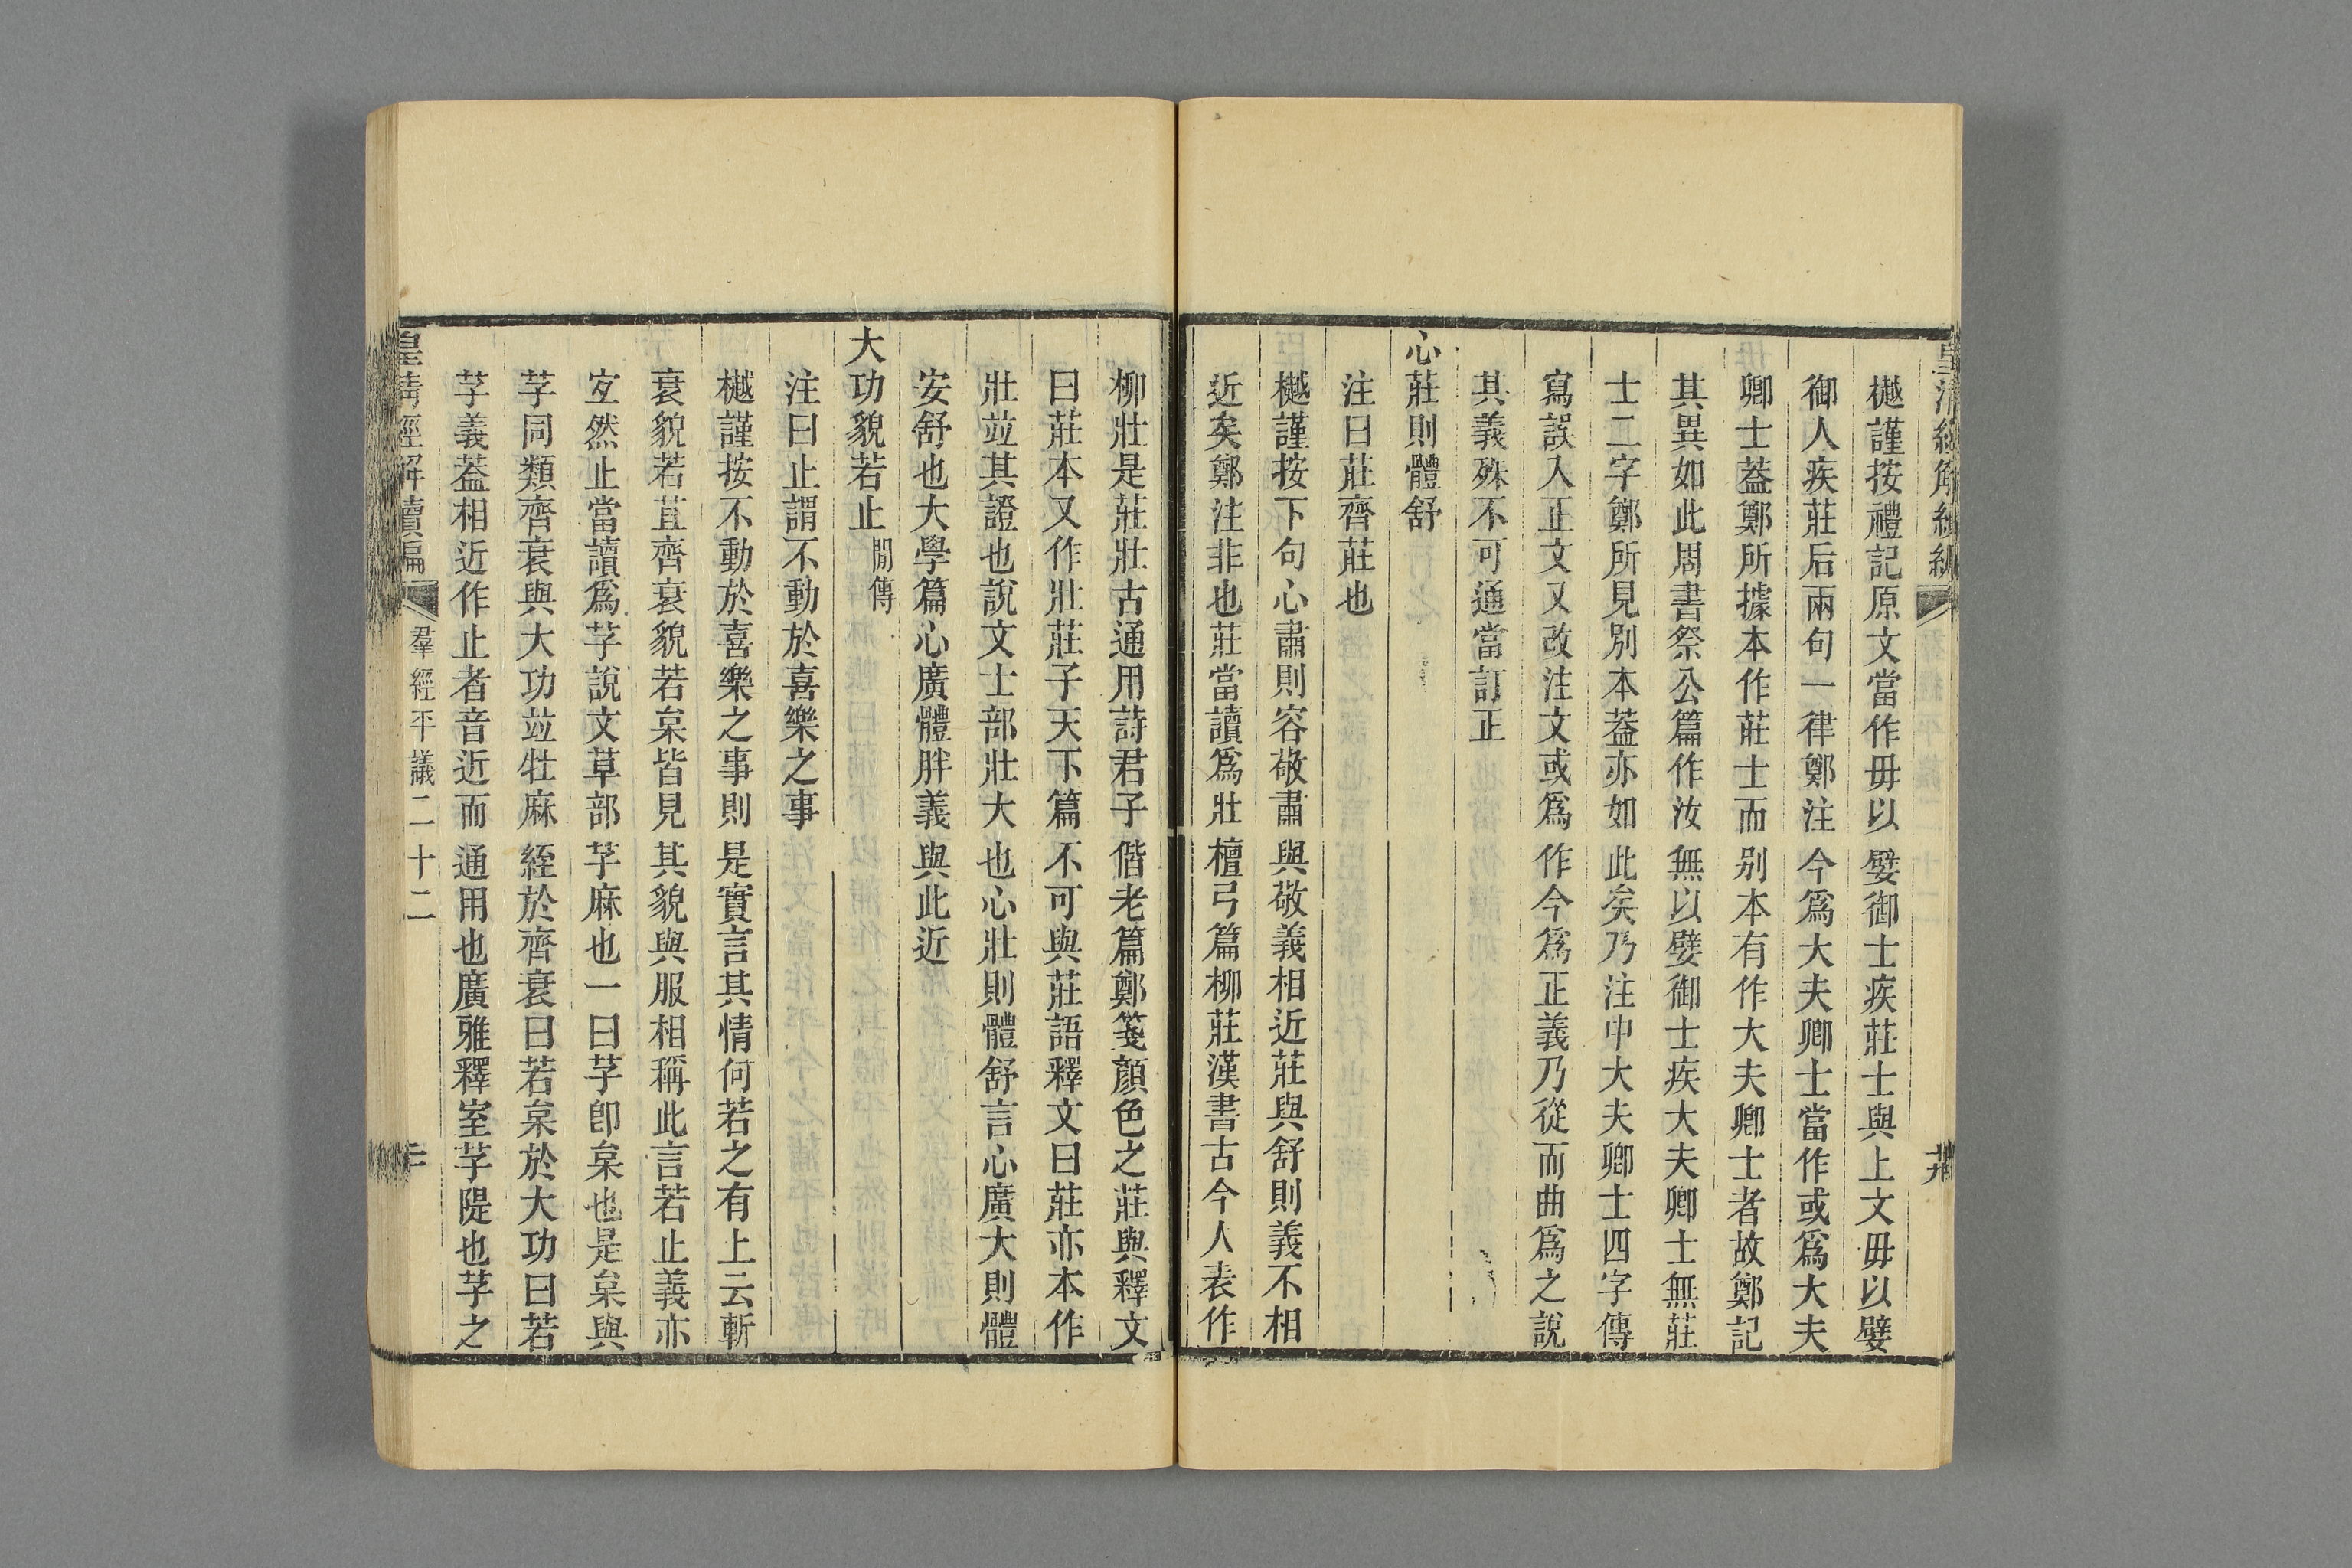 樾謹按禮記原文當作毋以嬖御士疾莊士與上文毋以嬖
御人疾莊后兩句一律鄭注今爲大夫卿士當作或爲大夫
卿士葢鄭所據本作莊士而别本有作大夫卿士者故鄭記
其異如此周書祭公篇作汝無以嬖御士疾大夫卿士無莊
士二字鄭所見别本葢亦如此矣乃注中大夫卿士四字傳
寫誤入正文又改注文或爲作今爲正義乃從而曲爲之說
其義殊不可通當訂正
心莊則體舒
注曰莊齊莊也
樾謹按下句心肅則容敬肅與敬義相近莊與舒則義不相
近矣鄭注非也莊當讀爲壯檀弓篇柳莊漢書古今人表作
柳壯是莊壯古通用詩君子偕老篇鄭箋顏色之莊與釋文
曰莊本又作壯莊子天下篇不可與莊語釋文曰莊亦本作
壯竝其證也說文士部壯大也心壯則體舒言心廣大則體
安舒也大學篇心廣體胖義與此近
大功貌若止閒傳
注曰止謂不動於喜樂之事
樾謹按不動於喜樂之事則是實言其情何若之有上云斬
衰貌若苴齊衰貌若枲皆見其貌與服相稱此言若止義亦
宐然止當讀爲芓說文草部芓麻也一曰芓卽枲也是枲與
芓同類齊衰與大功竝牡麻絰於齊衰曰若枲於大功曰若
芓義葢相近作止者音近而通用也廣雅釋室芓隄也芓之
皇清經解續編 羣經平議二十二